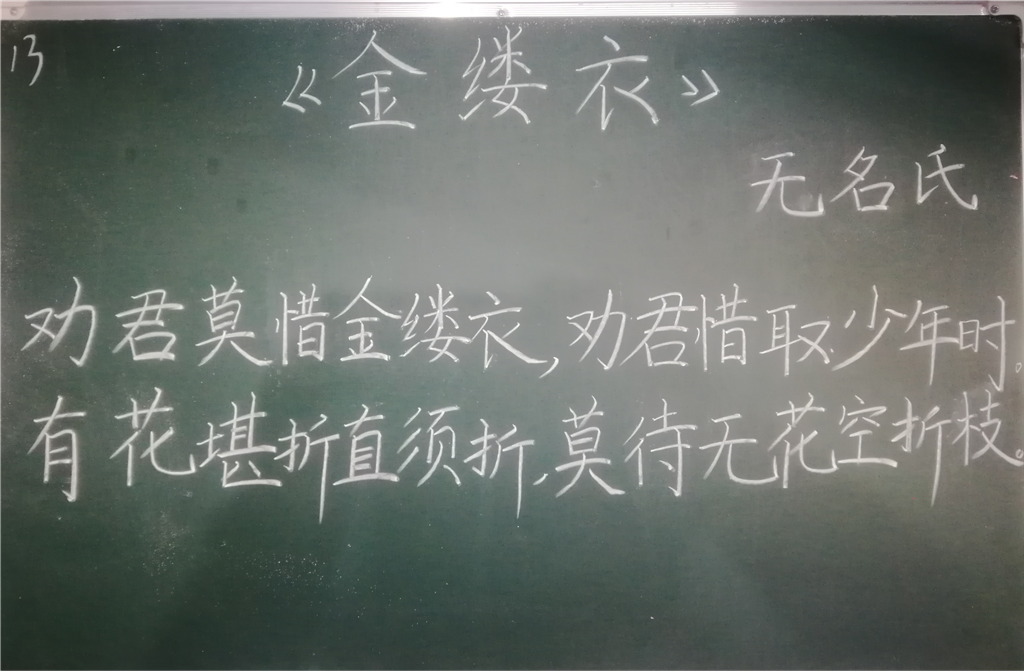 13
《金缕衣》
无名氏
劝君莫惜金缕衣,劝君惜取少年时。
有花堪折直须折,莫待无花空折枝。